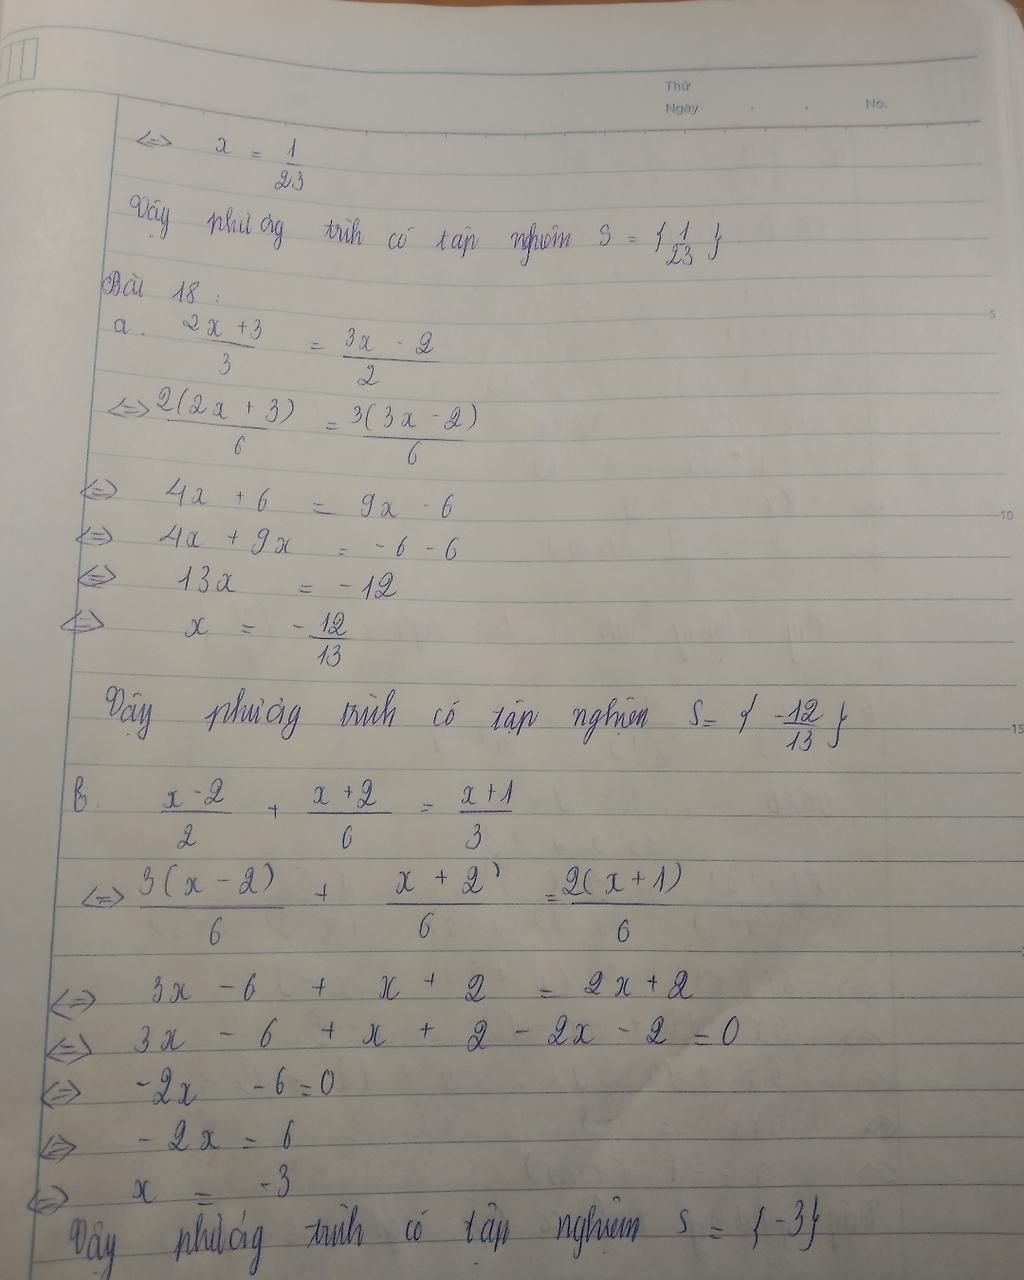 Thứ
Ngày . . No.
<=> x = 1/23
Vậy phương trình có tập nghiệm S = { 1/23 }
Bài 18 :
5
a. (2x + 3)/3 = (3x - 2)/2
<=> 2(2x + 3)/6 = 3(3x - 2)/6
<=> 4x + 6 = 9x - 6
10
<=> 4x + 9x = - 6 - 6
<=> 13x = - 12
<=> x = - 12/13
Vậy phương trình có tập nghiệm S = { -12/13 }
15
b. (x - 2)/2 + (x + 2)/6 = (x + 1)/3
<=> 3(x - 2)/6 + (x + 2)/6 = 2(x + 1)/6
<=> 3x - 6 + x + 2 = 2x + 2
<=> 3x - 6 + x + 2 - 2x - 2 = 0
<=> -2x - 6 = 0
<=> - 2x = 6
<=> x = -3
Vậy phương trình có tập nghiệm S = { -3 }